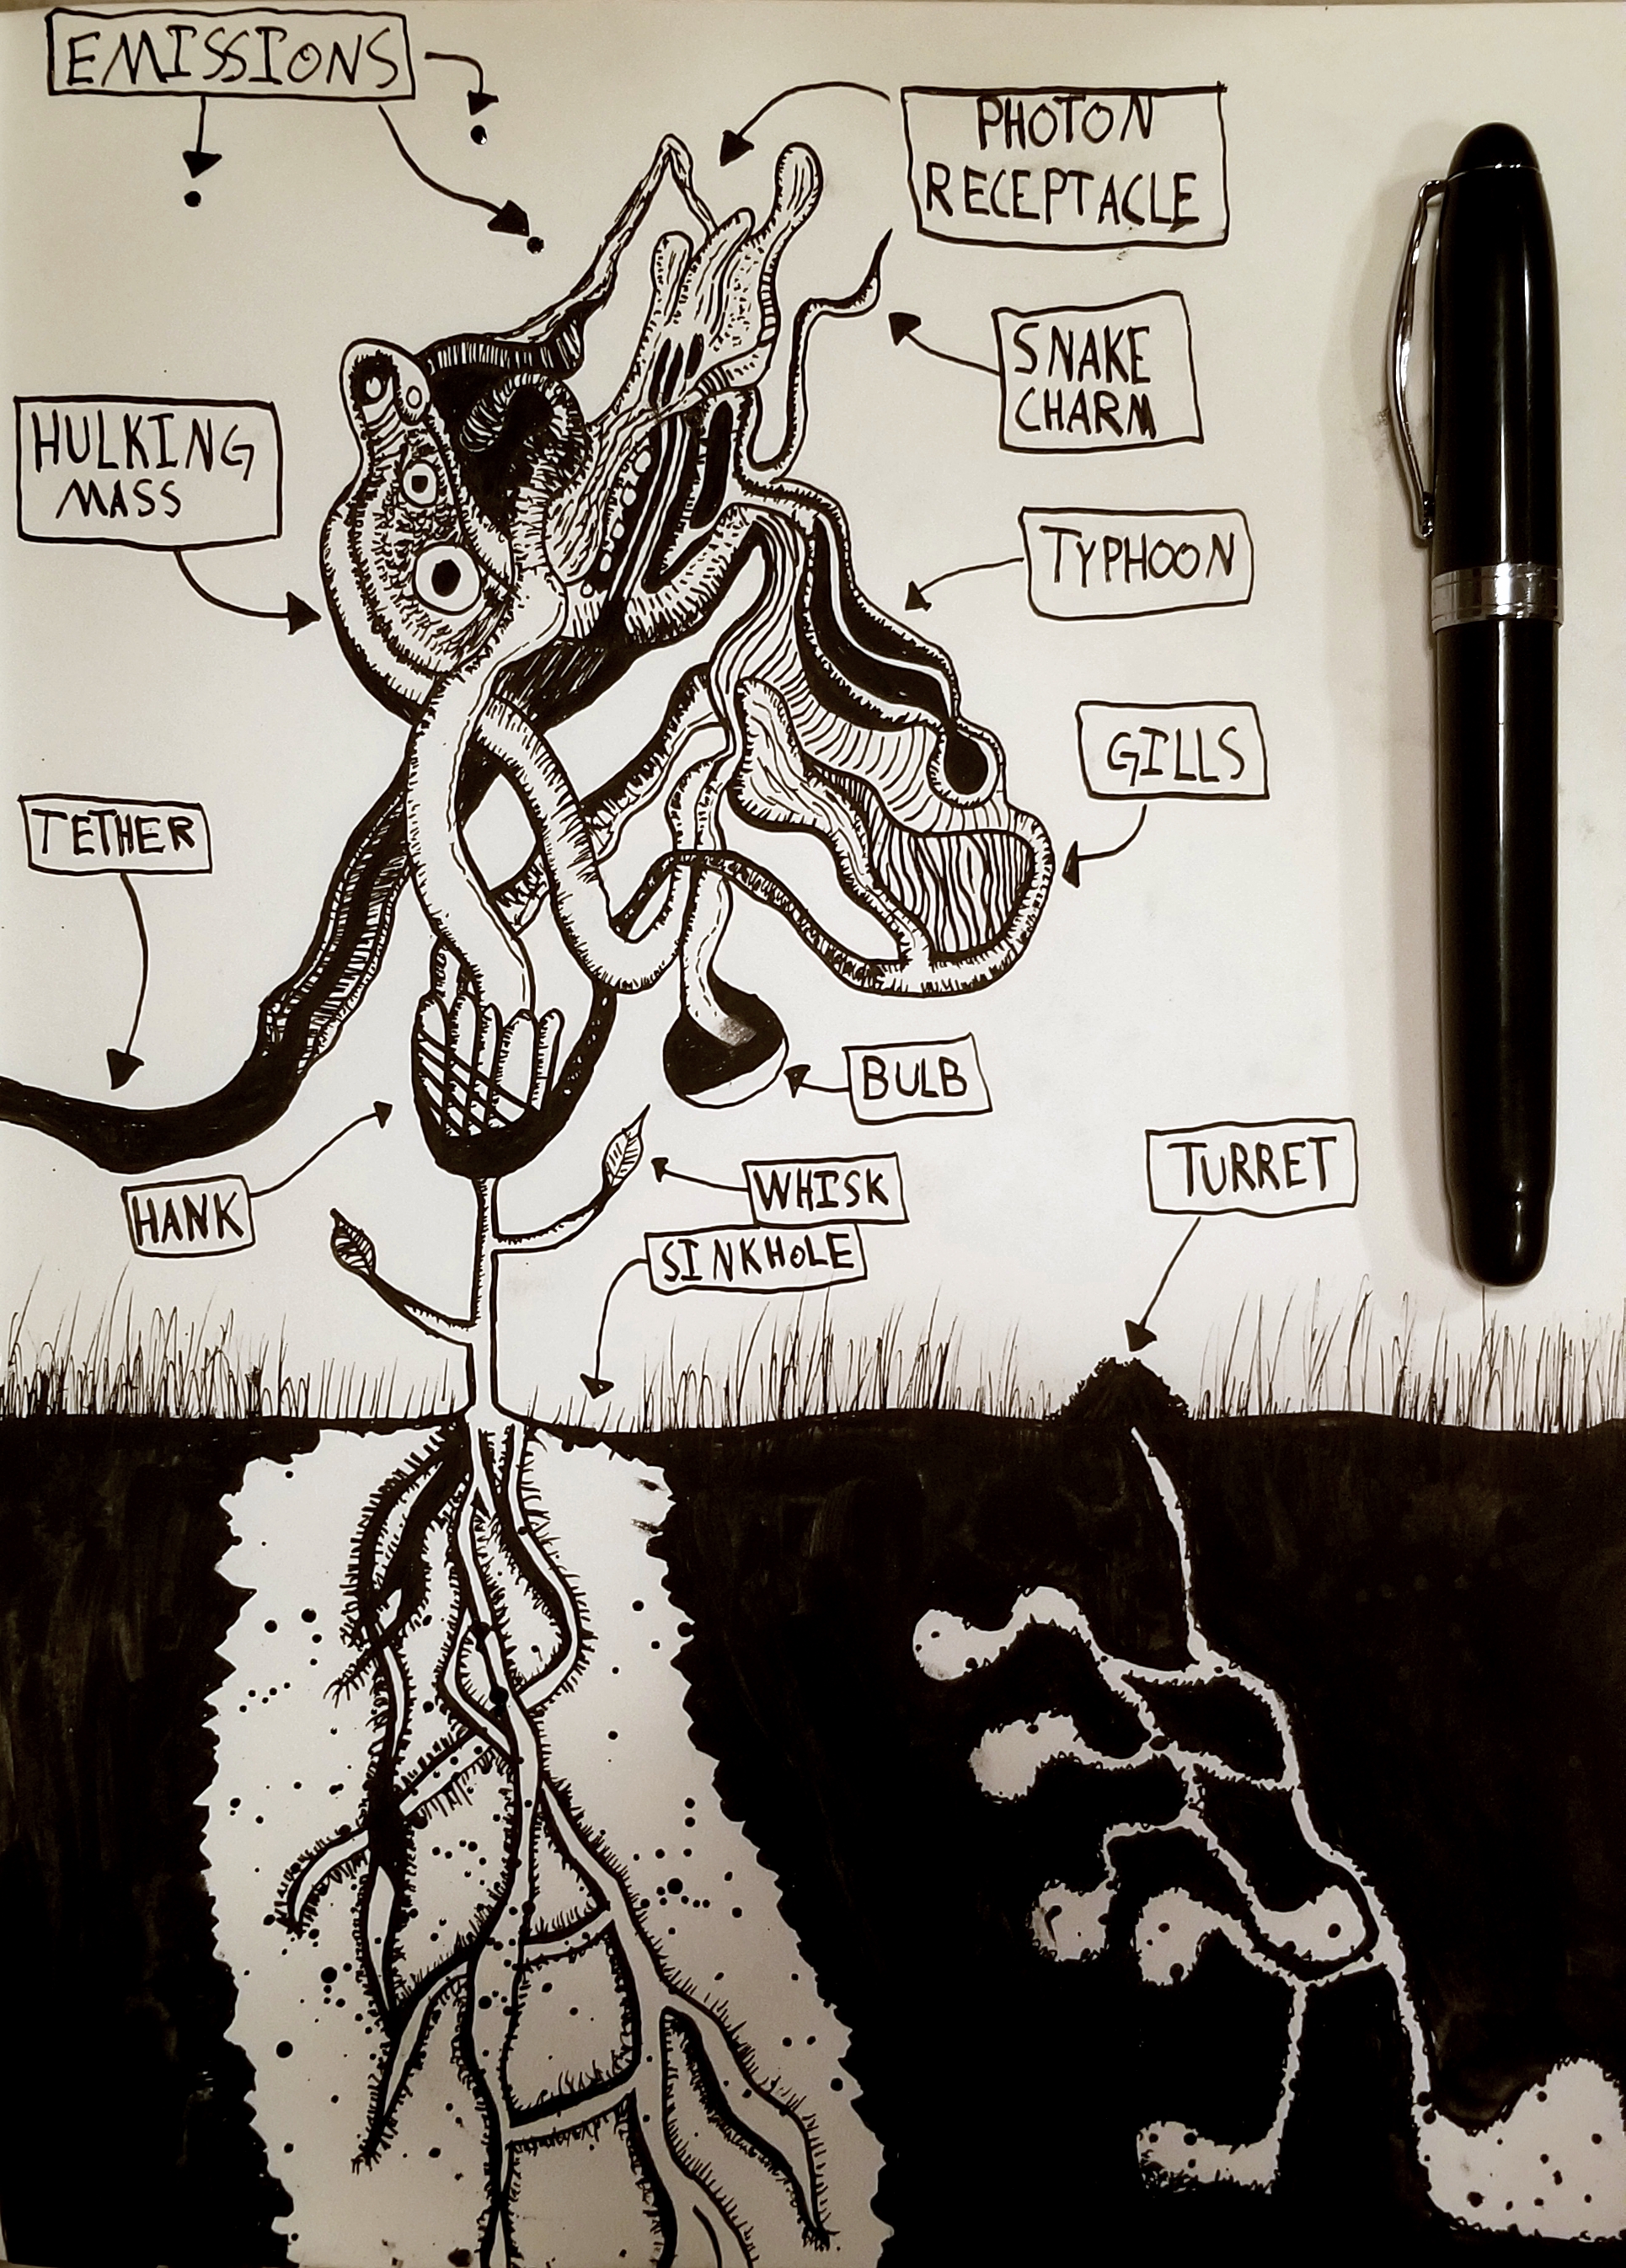 EMISSIONS
PHOTON
RECEPTACLE
SNAKE
CHARM
HULKING
MASS
TYPHOON
GILLS
TETHER
BULB
TURRET
WHISK
HANK
SINKHOLE